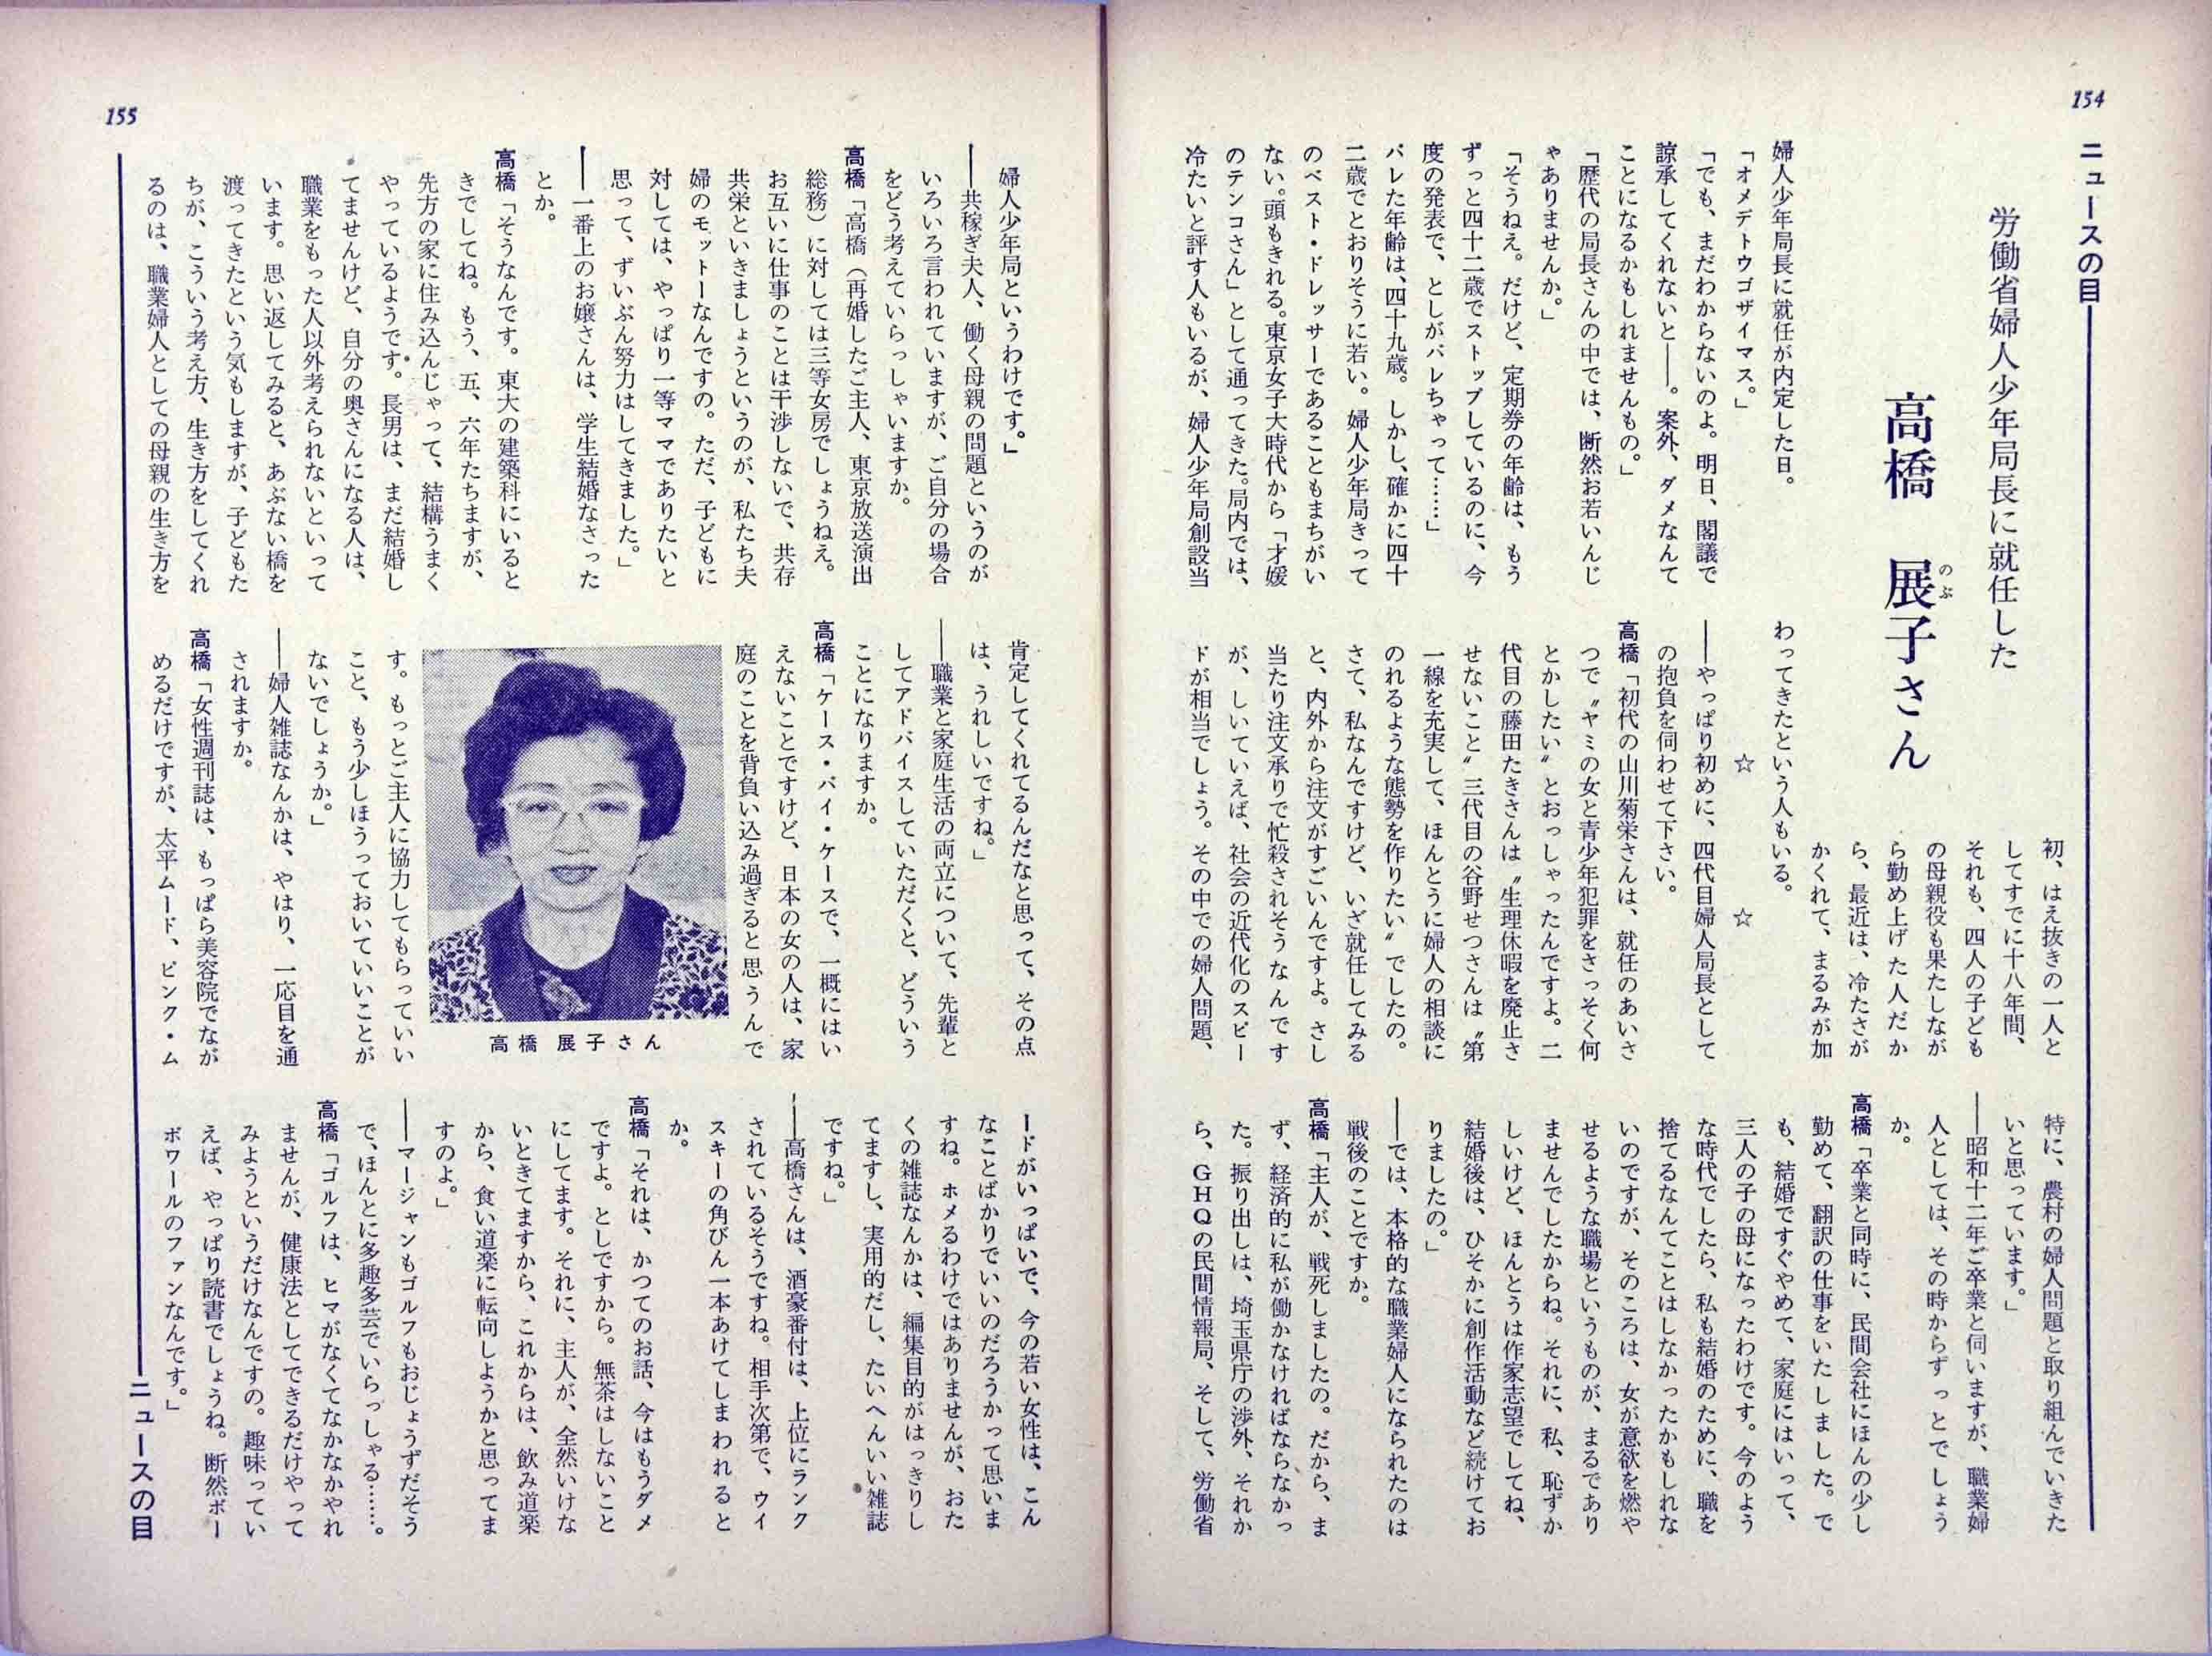 154
ニュースの目
労働省婦人少年局長に就任した
高橋　展子さん
のぶ
婦人少年局長に就任が内定した日。
「オメデトウゴザイマス。」
「でも、まだわからないのよ。明日、閣議で
諒承してくれないと――。案外、ダメなんて
ことになるかもしれませんもの。」
「歴代の局長さんの中では、断然お若いんじ
ゃありませんか。」
「そうねえ。だけど、定期券の年齢は、もう
ずっと四十二歳でストップしているのに、今
度の発表で、としがバレちゃって……」
バレた年齢は、四十九歳。しかし、確かに四十
二歳でとおりそうに若い。婦人少年局きって
のベスト・ドレッサーであることもまちがい
ない。頭もきれる。東京女子大時代から「才媛
のテンコさん」として通ってきた。局内では、
冷たいと評す人もいるが、婦人少年局創設当
初、はえ抜きの一人と
してすでに十八年間、
それも、四人の子ども
の母親役も果たしなが
ら勤め上げた人だか
ら、最近は、冷たさが
かくれて、まるみが加
わってきたという人もいる。
☆　☆
――やっぱり初めに、四代目婦人局長として
の抱負を伺わせて下さい。
高橋「初代の山川菊栄さんは、就任のあいさ
つで〝ヤミの女と青少年犯罪をさっそく何
とかしたい〟とおっしゃったんですよ。二
代目の藤田たきさんは〝生理休暇を廃止さ
せないこと〟三代目の谷野せつさんは〝第
一線を充実して、ほんとうに婦人の相談に
のれるような態勢を作りたい〟でしたの。
さて、私なんですけど、いざ就任してみる
と、内外から注文がすごいんですよ。さし
当たり注文承りで忙殺されそうなんです
が、しいていえば、社会の近代化のスピー
ドが相当でしょう。その中での婦人問題、
特に、農村の婦人問題と取り組んでいきた
いと思っています。」
――昭和十二年ご卒業と伺いますが、職業婦
人としては、その時からずっとでしょう
か。
高橋「卒業と同時に、民間会社にほんの少し
勤めて、翻訳の仕事をいたしました。で
も、結婚ですぐやめて、家庭にはいって、
三人の子の母になったわけです。今のよう
な時代でしたら、私も結婚のために、職を
捨てるなんてことはしなかったかもしれな
いのですが、そのころは、女が意欲を燃や
せるような職場というものが、まるであり
ませんでしたからね。それに、私、恥ずか
しいけど、ほんとうは作家志望でしてね、
結婚後は、ひそかに創作活動など続けてお
りましたの。」
――では、本格的な職業婦人になられたのは
戦後のことですか。
高橋「主人が、戦死しましたの。だから、ま
ず、経済的に私が働かなければならなかっ
た。振り出しは、埼玉県庁の渉外、それか
ら、ＧＨＱの民間情報局、そして、労働省
155
婦人少年局というわけです。」
――共稼ぎ夫人、働く母親の問題というのが
いろいろ言われていますが、ご自分の場合
をどう考えていらっしゃいますか。
高橋「高橋（再婚したご主人、東京放送演出
総務）に対しては三等女房でしょうねえ。
お互いに仕事のことは干渉しないで、共存
共栄といきましょうというのが、私たち夫
婦のモットーなんですの。ただ、子どもに
対しては、やっぱり一等ママでありたいと
思って、ずいぶん努力はしてきました。」
――一番上のお嬢さんは、学生結婚なさった
とか。
高橋「そうなんです。東大の建築科にいると
きでしてね。もう、五、六年たちますが、
先方の家に住み込んじゃって、結構うまく
やっているようです。長男は、まだ結婚し
てませんけど、自分の奥さんになる人は、
職業をもった人以外考えられないといって
います。思い返してみると、あぶない橋を
渡ってきたという気もしますが、子どもた
ちが、こういう考え方、生き方をしてくれ
るのは、職業婦人としての母親の生き方を
肯定してくれてるんだなと思って、その点
は、うれしいですね。」
――職業と家庭生活の両立について、先輩と
してアドバイスしていただくと、どういう
ことになりますか。
高橋「ケース・バイ・ケースで、一概にはい
えないことですけど、日本の女の人は、家
庭のことを背負い込み過ぎると思うんで
高橋 展子さん
す。もっとご主人に協力してもらっていい
こと、もう少しほうっておいていいことが
ないでしょうか。」
――婦人雑誌なんかは、やはり、一応目を通
されますか。
高橋「女性週刊誌は、もっぱら美容院でなが
めるだけですが、太平ムード、ピンク・ム
ードがいっぱいで、今の若い女性は、こん
なことばかりでいいのだろうかって思いま
すね。ホメるわけではありませんが、おた
くの雑誌なんかは、編集目的がはっきりし
てますし、実用的だし、たいへんいい雑誌
ですね。」
――高橋さんは、酒豪番付は、上位にランク
されているそうですね。相手次第で、ウイ
スキーの角びん一本あけてしまわれると
か。
高橋「それは、かつてのお話、今はもうダメ
ですよ。としですから。無茶はしないこと
にしてます。それに、主人が、全然いけな
いときてますから、これからは、飲み道楽
から、食い道楽に転向しようかと思ってま
すのよ。」
――マージャンもゴルフもおじょうずだそう
で、ほんとに多趣多芸でいらっしゃる……。
高橋「ゴルフは、ヒマがなくてなかなかやれ
ませんが、健康法としてできるだけやって
みようというだけなんですの。趣味ってい
えば、やっぱり読書でしょうね。断然ボー
ボワールのファンなんです。」
ニュースの目